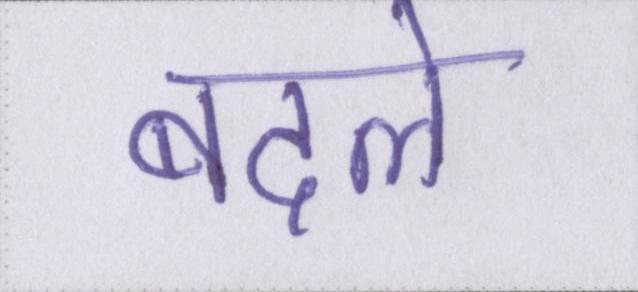 बदले